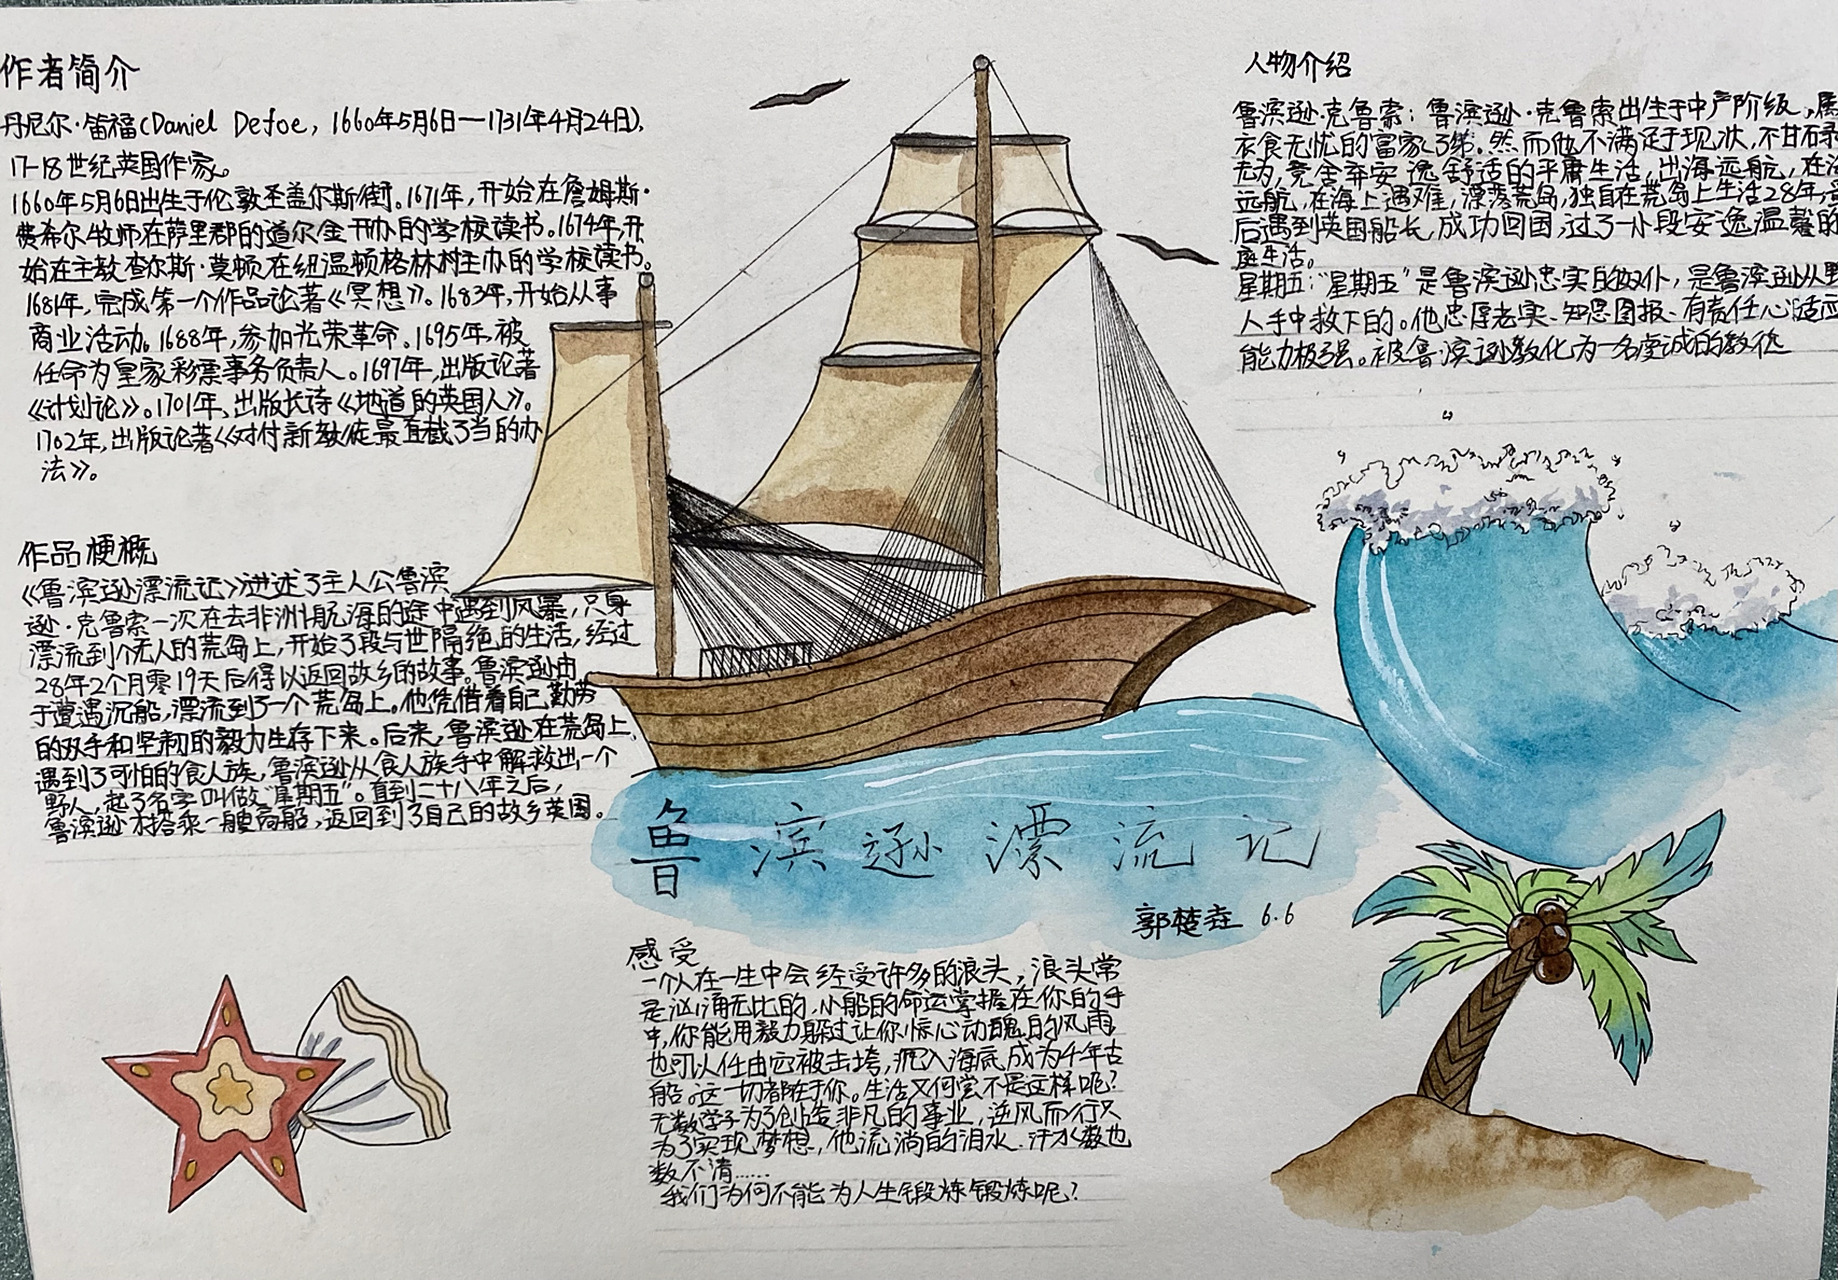 作者简介
丹尼尔·笛福(Daniel Defoe, 1660年5月6日—1731年4月24日),
17-18世纪英国作家。
1660年5月6日出生于伦敦圣盖尔斯街。1671年,开始在詹姆斯·
费希尔牧师在萨里郡的道尔金开办的学校读书。1674年,开
始在主教查尔斯·莫顿在纽温顿格林村主办的学校读书。
1681年,完成第一个作品论著《冥想》。1683年,开始从事
商业活动。1688年,参加光荣革命。1695年,被
任命为皇家彩票事务负责人。1697年,出版论著
《计划论》。1701年,出版长诗《地道的英国人》。
1702年,出版论著《对付新教徒最直截了当的办
法》。
作品梗概
《鲁滨逊漂流记》讲述了主人公鲁滨
逊·克鲁索一次在去非洲航海的途中遇到风暴,只身
漂流到个无人的荒岛上,开始了段与世隔绝的生活,经过
28年2个月零19天后得以返回故乡的故事。鲁滨逊由
于遭遇沉船,漂流到了一个荒岛上。他凭借着自己勤劳
的双手和坚韧的毅力生存下来。后来,鲁滨逊在荒岛上
遇到了可怕的食人族,鲁滨逊从食人族手中解救出一个
野人,起了名字叫做"星期五"。直到二十八年之后,
鲁滨逊才搭乘一艘商船,返回到了自己的故乡英国。
人物介绍
鲁滨逊·克鲁索:鲁滨逊·克鲁索出生于中产阶级,属
衣食无忧的富家子弟。然而他不满足于现状,不甘碌
无为,竟舍弃安逸舒适的平庸生活,出海远航,在
远航,在海上遇难,漂湾荒岛,独自在荒岛上生活28年,最
后遇到英国船长,成功回国,过了一小段安逸温馨的
庭生活。
星期五:"星期五"是鲁滨逊忠实的奴仆,是鲁滨逊从野
人手中救下的。他忠厚老实、知恩图报、有责任心适应
能力极强。被鲁滨逊教化为一名虔诚的教徒
鲁滨逊漂流记
郭楚垚 6.6
感受
一个人在一生中会经受许多的浪头,浪头常
是汹涌无比的,小船的命运掌握在你的手
中,你能用毅力躲过让你惊心动魄的风雨,
也可以任由它被击垮,沉入海底,成为千年古
船。这一切都在于你。生活又何尝不是这样呢?
无数学子为了创造非凡的事业,逆风而行只
为了实现梦想,他流淌的泪水、汗水数也
数不清……
我们为何不能为人生锻炼锻炼呢?